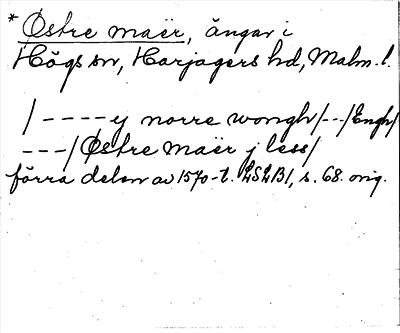 * Östre maër, ängar i
Högs sn, Harjagers hd, Malm. l.
/ - - - - y norre wongh/ - - /Engh/
- - - / Østre maër j less/
förra delen av 1570-t. LSLB1, s. 68. orig.